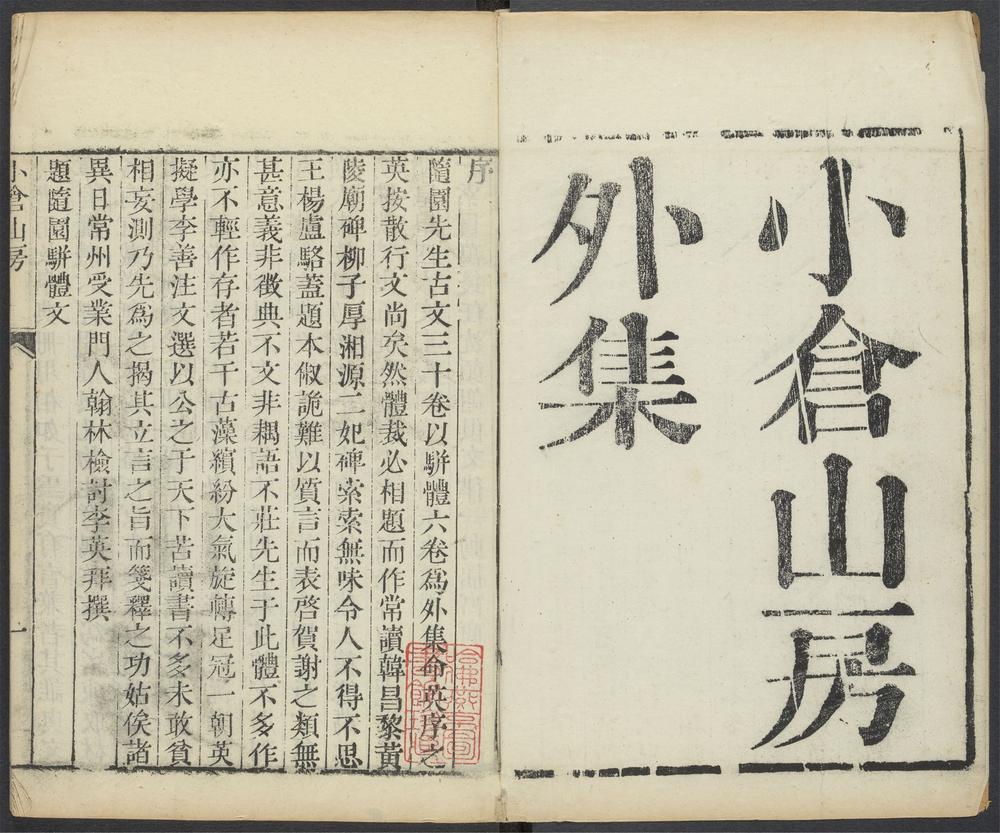 小倉山房
外集
序
隨園先生古文三十卷以駢體六卷爲外集命英序之
英按散行文尚矣然體裁必相題而作常讀韓昌黎黃
陵廟碑柳子厚湘源二妃碑索索無味令人不得不思
王楊盧駱蓋題本俶詭難以質言而表啓賀謝之類無
甚意義非徵典不文非耦語不莊先生于此體不多作
亦不輕作存者若干古藻繽紛大氣旋轉足冠一朝英
擬學李善注文選以公之于天下苦讀書不多未敢貧
相妄測乃先爲之揭其立言之旨而箋釋之功姑俟諸
異日常州受業門人翰林檢討李英拜撰
題隨園駢體文
小倉山房
一